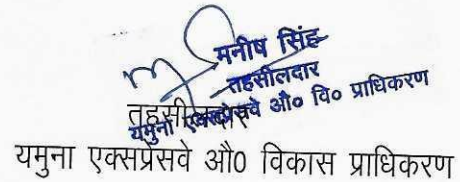 मनीष सिंह
तहसीलदार
यमुना एक्सप्रेसवे औ० वि० प्राधिकरण
तहसीलदार
यमुना एक्सप्रेसवे औ० विकास प्राधिकरण